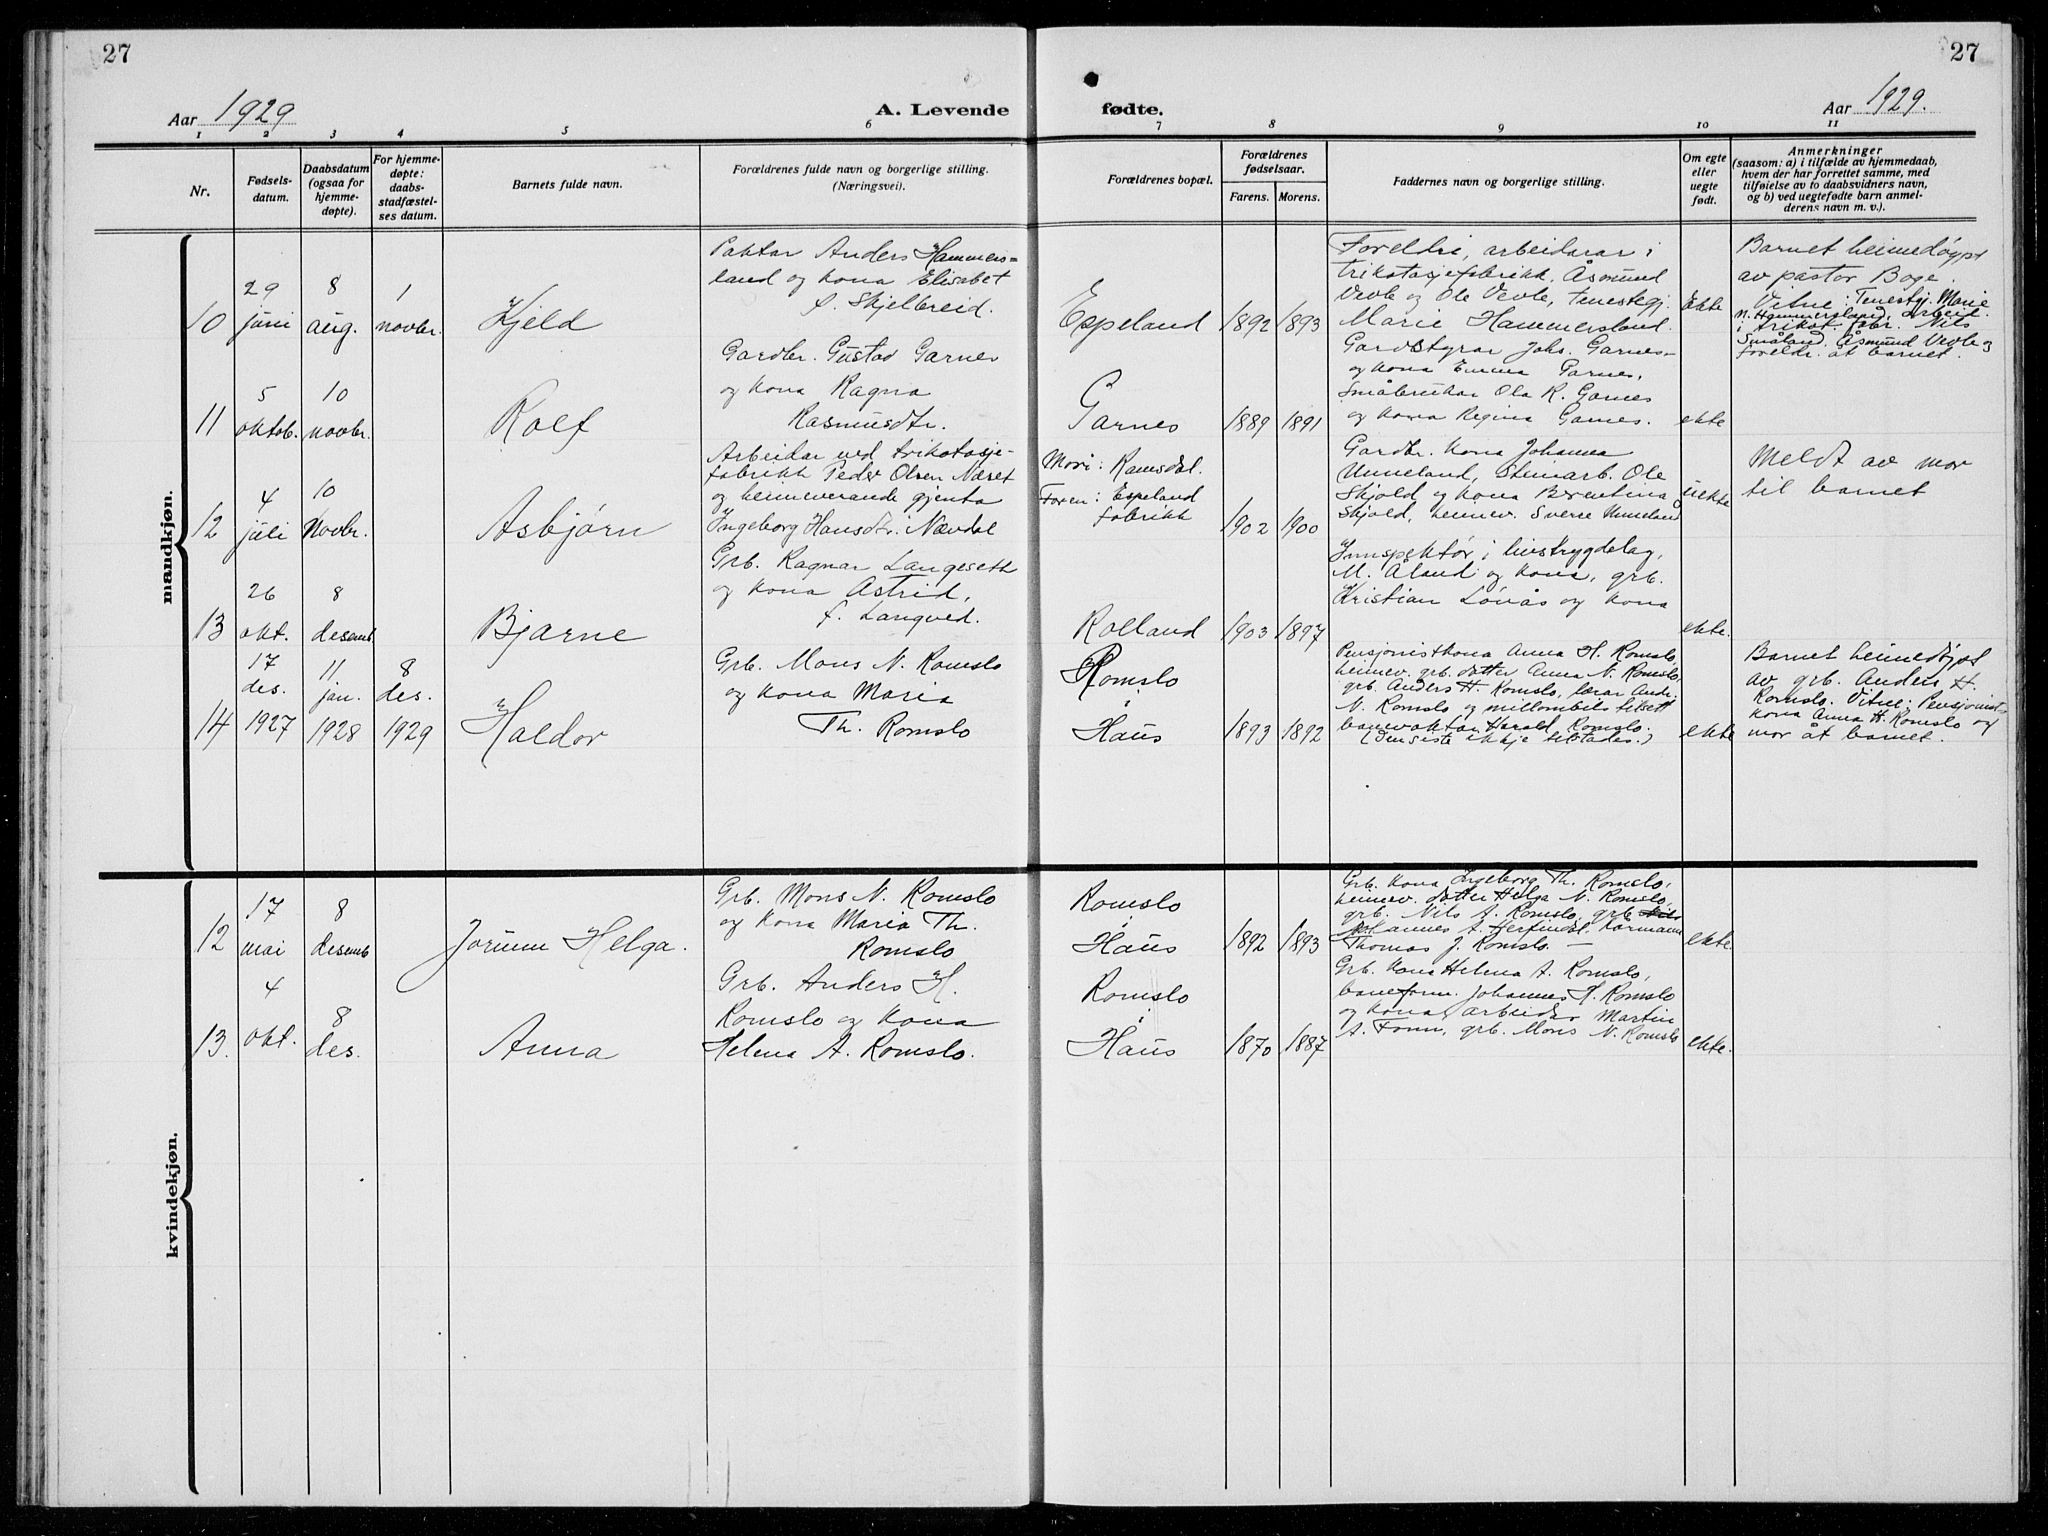 27
27
Aar 1929
A. Levende fødte.
Aar 1929.
1 2 3 4 5 6 7 8 9 10 11
Nr.
Fødsels-
datum.
Daabsdatum
(ogsaa for
hjemme-
døpte).
For hjemme-
døpte:
daabs-
stadfæstel-
ses datum.
Barnets fulde navn.
Forældrenes fulde navn og borgerlige stilling.
(Næringsvei).
Forældrenes bopæl.
Forældrenes
fødselsaar.
Farens. Morens.
Faddernes navn og borgerlige stilling.
Om egte
eller
uegte
født.
Anmerkninger
(saasom: a) i tilfælde av hjemmedaab,
hvem der har forrettet samme, med
tilføielse av to daabsvidners navn,
og b) ved uegtefødte barn anmel-
derens navn m. v.).
mandkjøn.
10
29
juni
8
aug.
1
novbr.
Kjeld
Paktar Anders Hammers=
land og kona Elisabet
f. Skjelbreid.
Espeland
1892 1893
Foreldri, arbeidarar i
trikotasjefabrikk, Åsmund
Vevle og Ole Vevle, tenestegj.
Marie Hammersland.
Ekte
Barnet heimedøypt
av pastor Boge.
Vitne: Tenestgj. Marie
N. Hammersland, arbeid.
i trikot. fabr. Nils
Småland. Åsmund Vevle og
foreldr. åt barnet.
11
5
oktob.
10
novbr.
Rolf
Gardbr. Gustav Garnes
og kona Ragna
Rasmusdtr.
Garnes
1889 1891
Gardstyrar Johs. Garnes
og kona Emma Garnes,
Småbrukar Ola R. Garnes
og kona Regina Garnes.
ekte
12
4
juli
10
Novbr.
Asbjørn
Arbeidar ved trikotasje-
fabrikk Peder Olsen Næset
og heimeverande gjenta
Ingeborg Hansdtr. Nævdal
Mori: Ramsdal.
Faren: Espeland
fabrikk
1902 1900
Gardbr. kona Johanna
Unneland, Steinarb. Ole
Skjold og kona Berentina
Skjold, heimev. Sverre Unneland
uekte
Meldt av mor
til barnet
13
26
okt.
8
desemb
Bjarne
Grb. Ragnar Langeseth
og kona Astrid,
f. Langved.
Rolland
1903 1897
Innspektør i livstrygdelag,
M. Åland og kona, grb.
Kristian Lønås og kona
ekte.
14
17
des.
1927
11
jan.
1928
8
des.
1929
Haldor
Grb. Mons N. Romslo
og kona Maria
Th. Romslo
Romslo
i
Haus
1893 1892
Pensjonistkona Anna H. Romslo,
heimev. grb. dotter Anna N. Romslo,
grb. Anders H. Romslo, lærar Andr.
N. Romslo og millombils tilsett
banevaktar Harald Romslo.
(Den siste ikkje tilstades.)
ekte
Barnet heimedøypt
av grb. Anders H.
Romslo. Vitne: Pensjonist-
kona Anna H. Romslo og
mor åt barnet.
kvindekjøn.
12
17
mai
8
desemb
Jorunn Helga.
Grb. Mons N. Romslo
og kona Maria Th.
Romslo
Romslo
i
Haus
1892 1893
Grb. kona Ingeborg Th. Romslo,
heimev. dotter Helga N. Romslo,
grb. Nils A. Romslo, grb.
Johannes A. Herfindal, karmann
Thomas J. Romslo. —
ekte.
13.
4
okt.
8
des.
Anna
Grb. Anders H.
Romslo og kona
Helena A. Romslo.
Romslo
i
Haus
1870 1887
Grb. kona Helena A. Romslo,
baneform. Johannes H. Romslo
og kona, arbeider Martin
A. Fonn, grb. Mons N. Romslo
ekte.